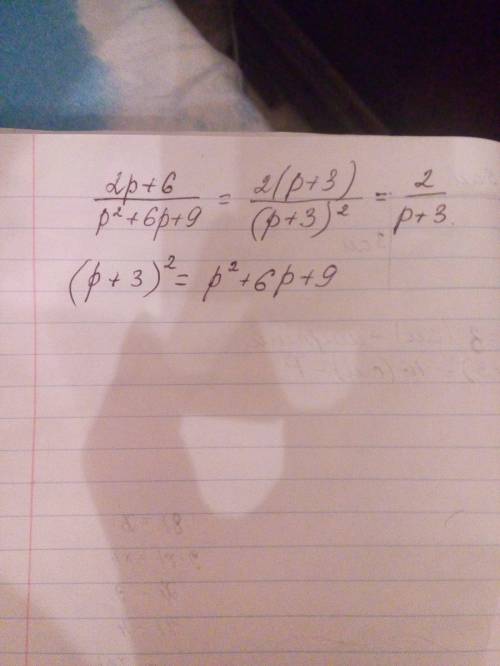 2p+6 / p²+6p+9 = 2(p+3) / (p+3)² = 2 / p+3.
(p+3)² = p²+6p+9